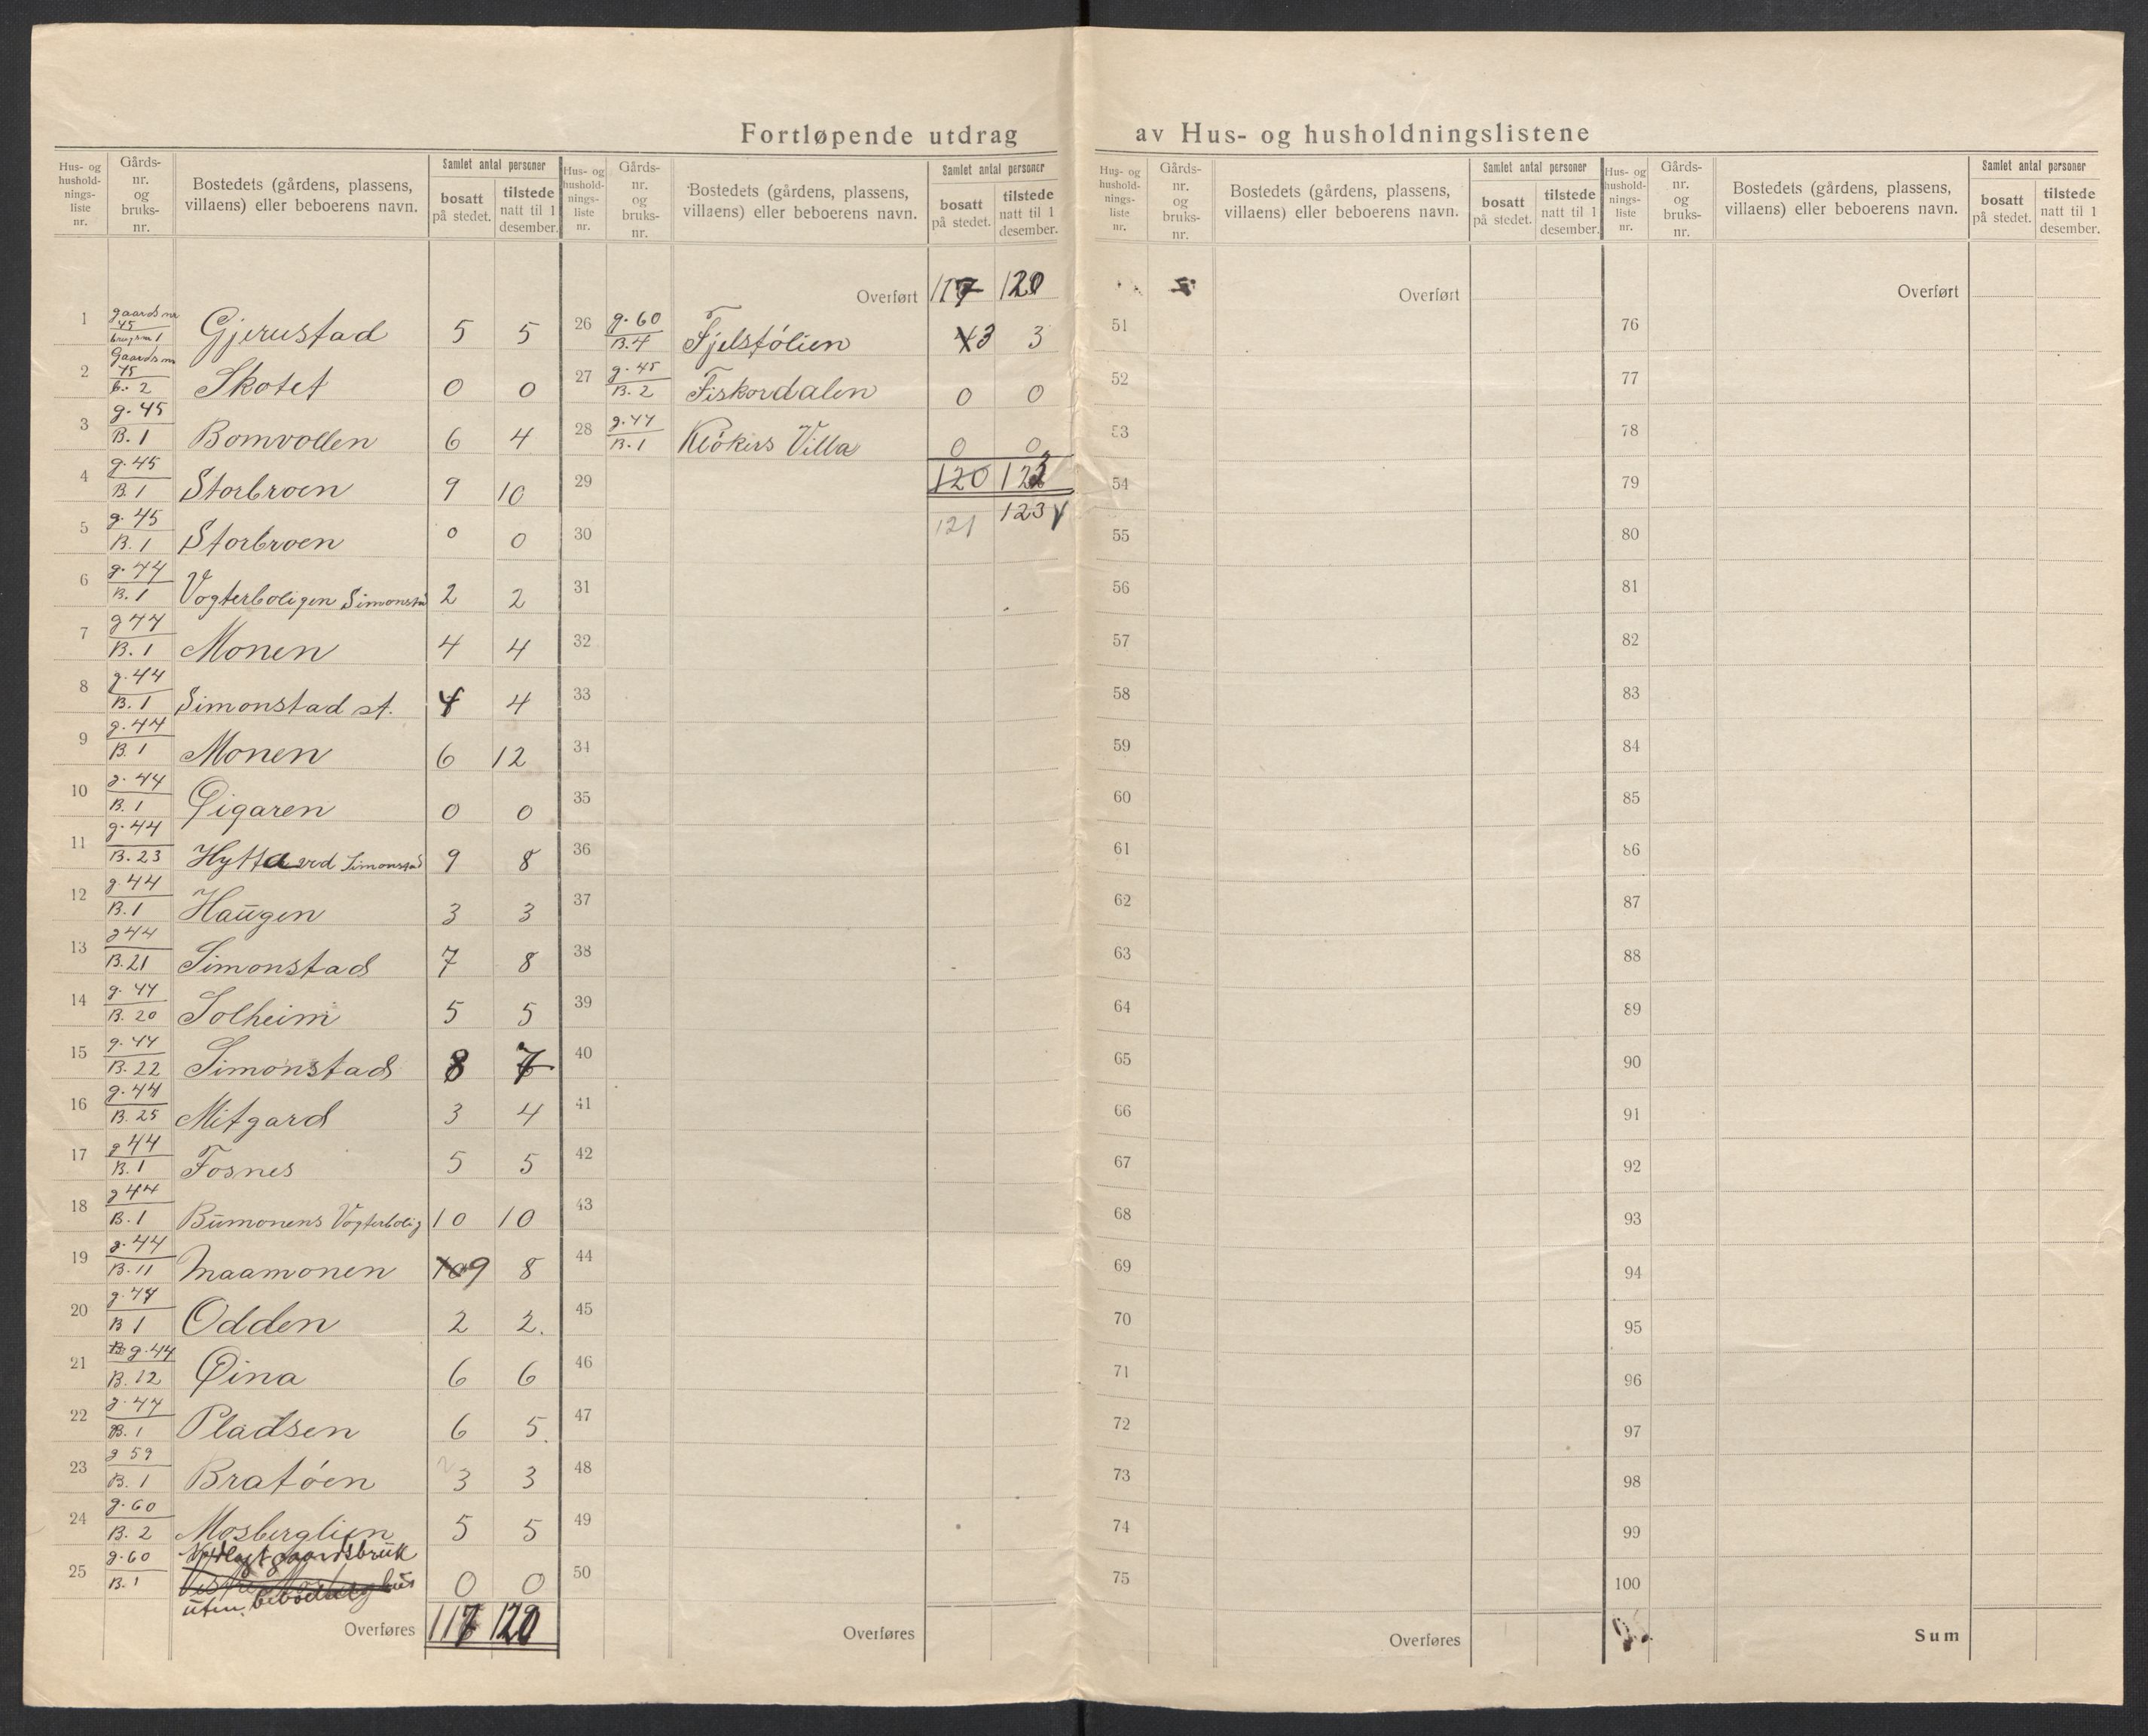 Fortløpende utdrag av Hus- og husholdningslistene
Hus- og hushold-nings-liste nr. | Gårds-nr. og bruks-nr. | Bostedets (gårdens, plassens, villaens) eller beboerens navn. | Samlet antal personer | bosatt på stedet. | tilstede natt til 1 desember.
1 | gaards nr 45 brugsnr 1 | Gjerustad | 5 | 5
2 | Gaards nr 45 b. 2 | Skotet | 0 | 0
3 | g. 45 B. 1 | Bomvollen | 6 | 4
4 | g. 45 B. 1 | Storbroen | 9 | 10
5 | g. 45 B. 1 | Storbroen | 0 | 0
6 | g. 44 B. 1 | Vogterboligen Simonsta | 2 | 2
7 | g 44 B. 1 | Monen | 4 | 4
8 | g. 44 B. 1 | Simonstad st. | 4 | 4
9 | g. 44 B. 1 | Monen | 6 | 12
10 | g. 44 B. 1 | Øigaren | 0 | 0
11 | g. 44 B. 23 | Hytta ved Simonstad | 9 | 8
12 | g. 44 B. 1 | Haugen | 3 | 3
13 | g 44 B. 21 | Simonstad | 7 | 8
14 | g. 44 B. 20 | Solheim | 5 | 5
15 | g. 44 B. 22 | Simonstad | 8 | 7
16 | g. 44 B. 25 | Mitgard | 3 | 4
17 | g 44 B. 1 | Fosnes | 5 | 5
18 | g 44 B. 1 | Bumonens Vogterbolig | 10 | 10
19 | g. 44 B. 11 | Maamonen | 10 9 | 8
20 | g. 44 B 1 | Odden | 2 | 2.
21 | g. 44 B. 12 | Øina | 6 | 6
22 | g. 44 B. 1 | Pladsen | 6 | 5.
23 | g 59 B. 1 | Bratóen | 3 | 3
24 | g. 60 B. 2 | Mosberglien | 5 | 5
25 | g. 60 B. 1 | gaardsbruk uten | 0 | 0
Overføres | 117 | 120
Hus- og hushold-nings-liste nr. | Gårds-nr. og bruks-nr. | Bostedets (gårdens, plassens, villaens) eller beboerens navn. | Samlet antal personer | bosatt på stedet. | tilstede natt til 1 desember.
Overført | 117 | 120
26 | g. 60 B. 4 | Fjelstólien | 4 3 | 3
27 | g. 45 B. 2 | Fiskordalen | 0 | 0
28 | g. 44 B. 1 | Klókers Villa | 0 | 0
29 | 120 | 123
30 | 121 | 123 √
31
32
33
34
35
36
37
38
39
40
41
42
43
44
45
46
47
48
49
50
Overføres
Hus- og hushold-nings-liste nr. | Gårds-nr. og bruks-nr. | Bostedets (gårdens, plassens, villaens) eller beboerens navn. | Samlet antal personer | bosatt på stedet. | tilstede natt til 1 desember.
Overført
51
52
53
54
55
56
57
58
59
60
61
62
63
64
65
66
67
68
69
70
71
72
73
74
75
Overføres
Hus- og hushold-nings-liste nr. | Gårds-nr. og bruks-nr. | Bostedets (gårdens, plassens, villaens) eller beboerens navn. | Samlet antal personer | bosatt på stedet. | tilstede natt til 1 desember.
Overført
76
77
78
79
80
81
82
83
84
85
86
87
88
89
90
91
92
93
94
95
96
97
98
99
100
Sum